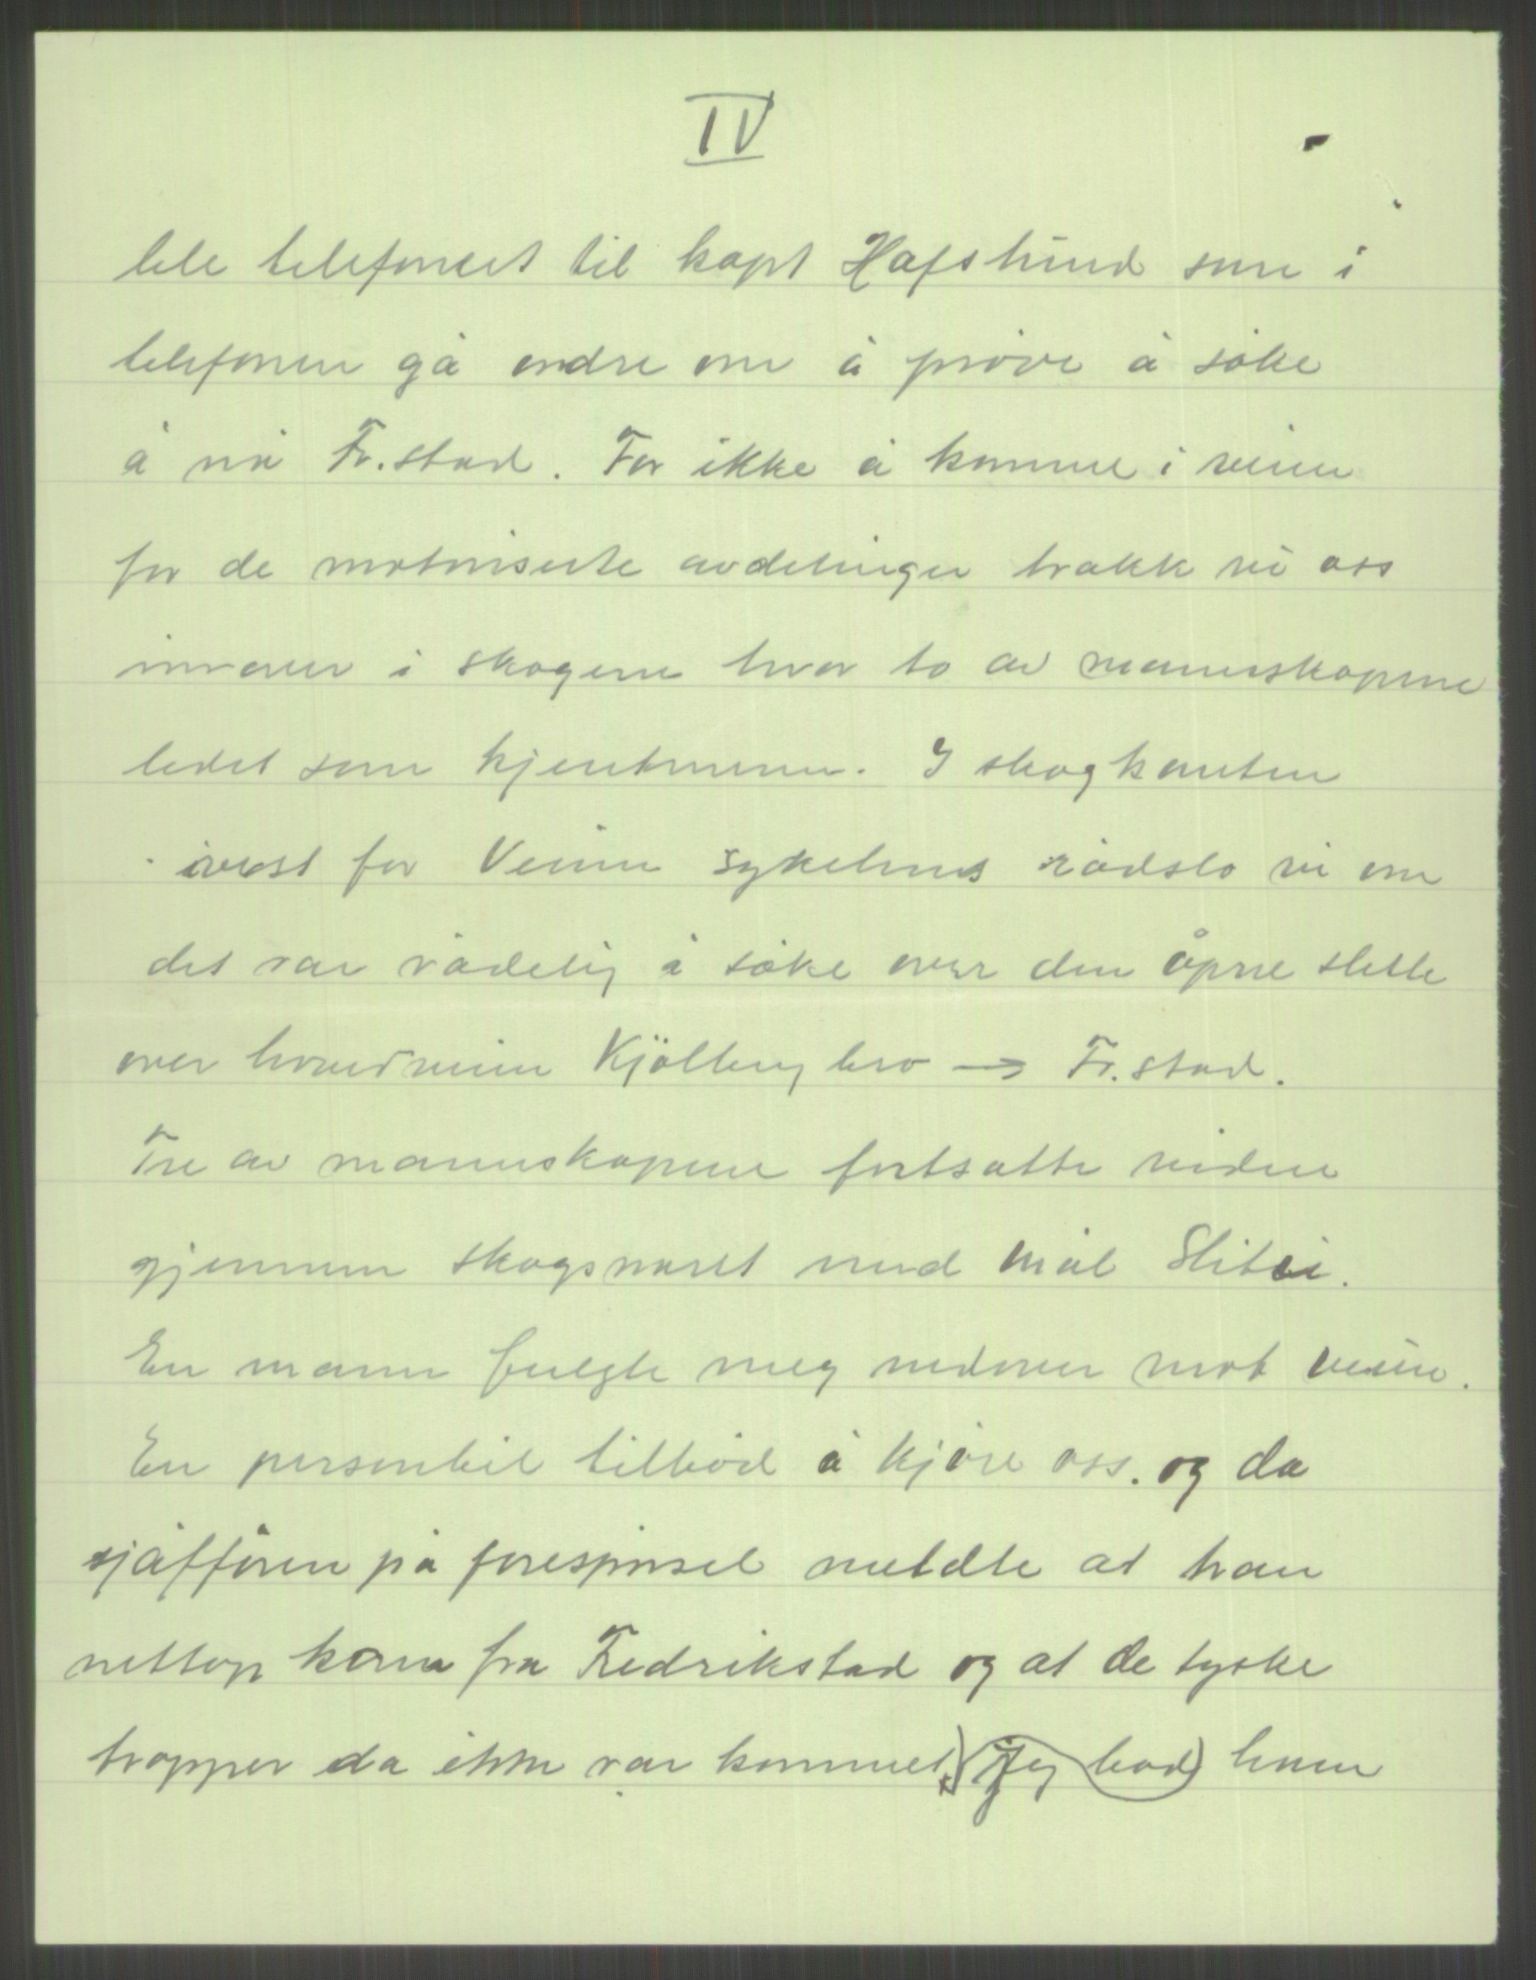 IV
ble telefonert til kapt Hafslund som i
telefonen ga ordre om å prøve å söke
å nå Fr.stad. For ikke å komme i veien
for de motoriserte avdelinger trakk vi oss
innover i skogene hvor to av mannskapene
ledet som kjentmenn. I skogkanten
øvest for Veum sykehus rådslo vi om
det var rådelig å söke over den åpne slette
over hovedveien Kjölberg bro → Fr.stad.
Tre av mannskapene fortsatte videre
gjennem skogsnaret med mål Slitui.
En mann fulgte meg nedover mot veien.
En personbil tilbød å kjøre oss. og da
sjåfføren på forespørsel meldte at han
nettop kom fra Fredrikstad og at de tyske
tropper da ikke var kommet, jeg bad ham